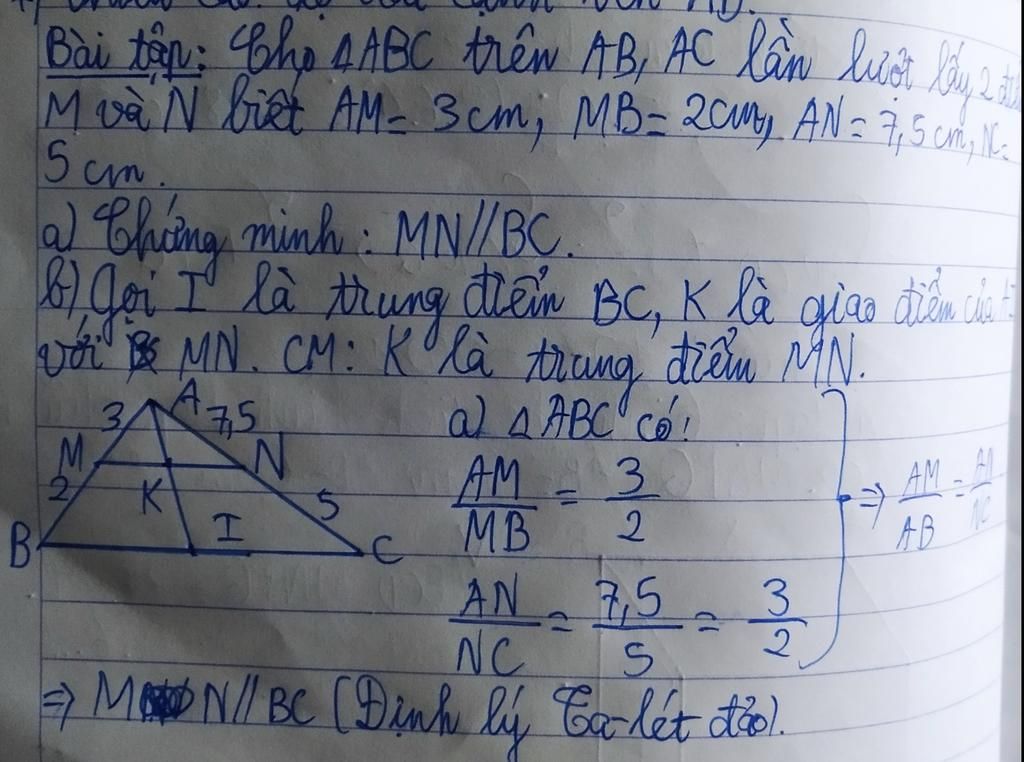 Bài tập: Cho ΔABC trên AB, AC lần lượt lấy 2
M và N biết AM = 3cm, MB = 2cm, AN = 7,5 cm, NC =
5 cm.
a) Chứng minh: MN//BC.
b) Gọi I là trung điểm BC, K là giao điểm của
với MN. CM: K là trung điểm MN.
A
3
7,5
M
N
2
K
5
B
I
C
a) ΔABC có:
AM/MB = 3/2
⇒ AM/AB = AN/NC
AN/NC = 7,5/5 = 3/2
⇒ MN//BC (Định lý Ta-lét đảo).